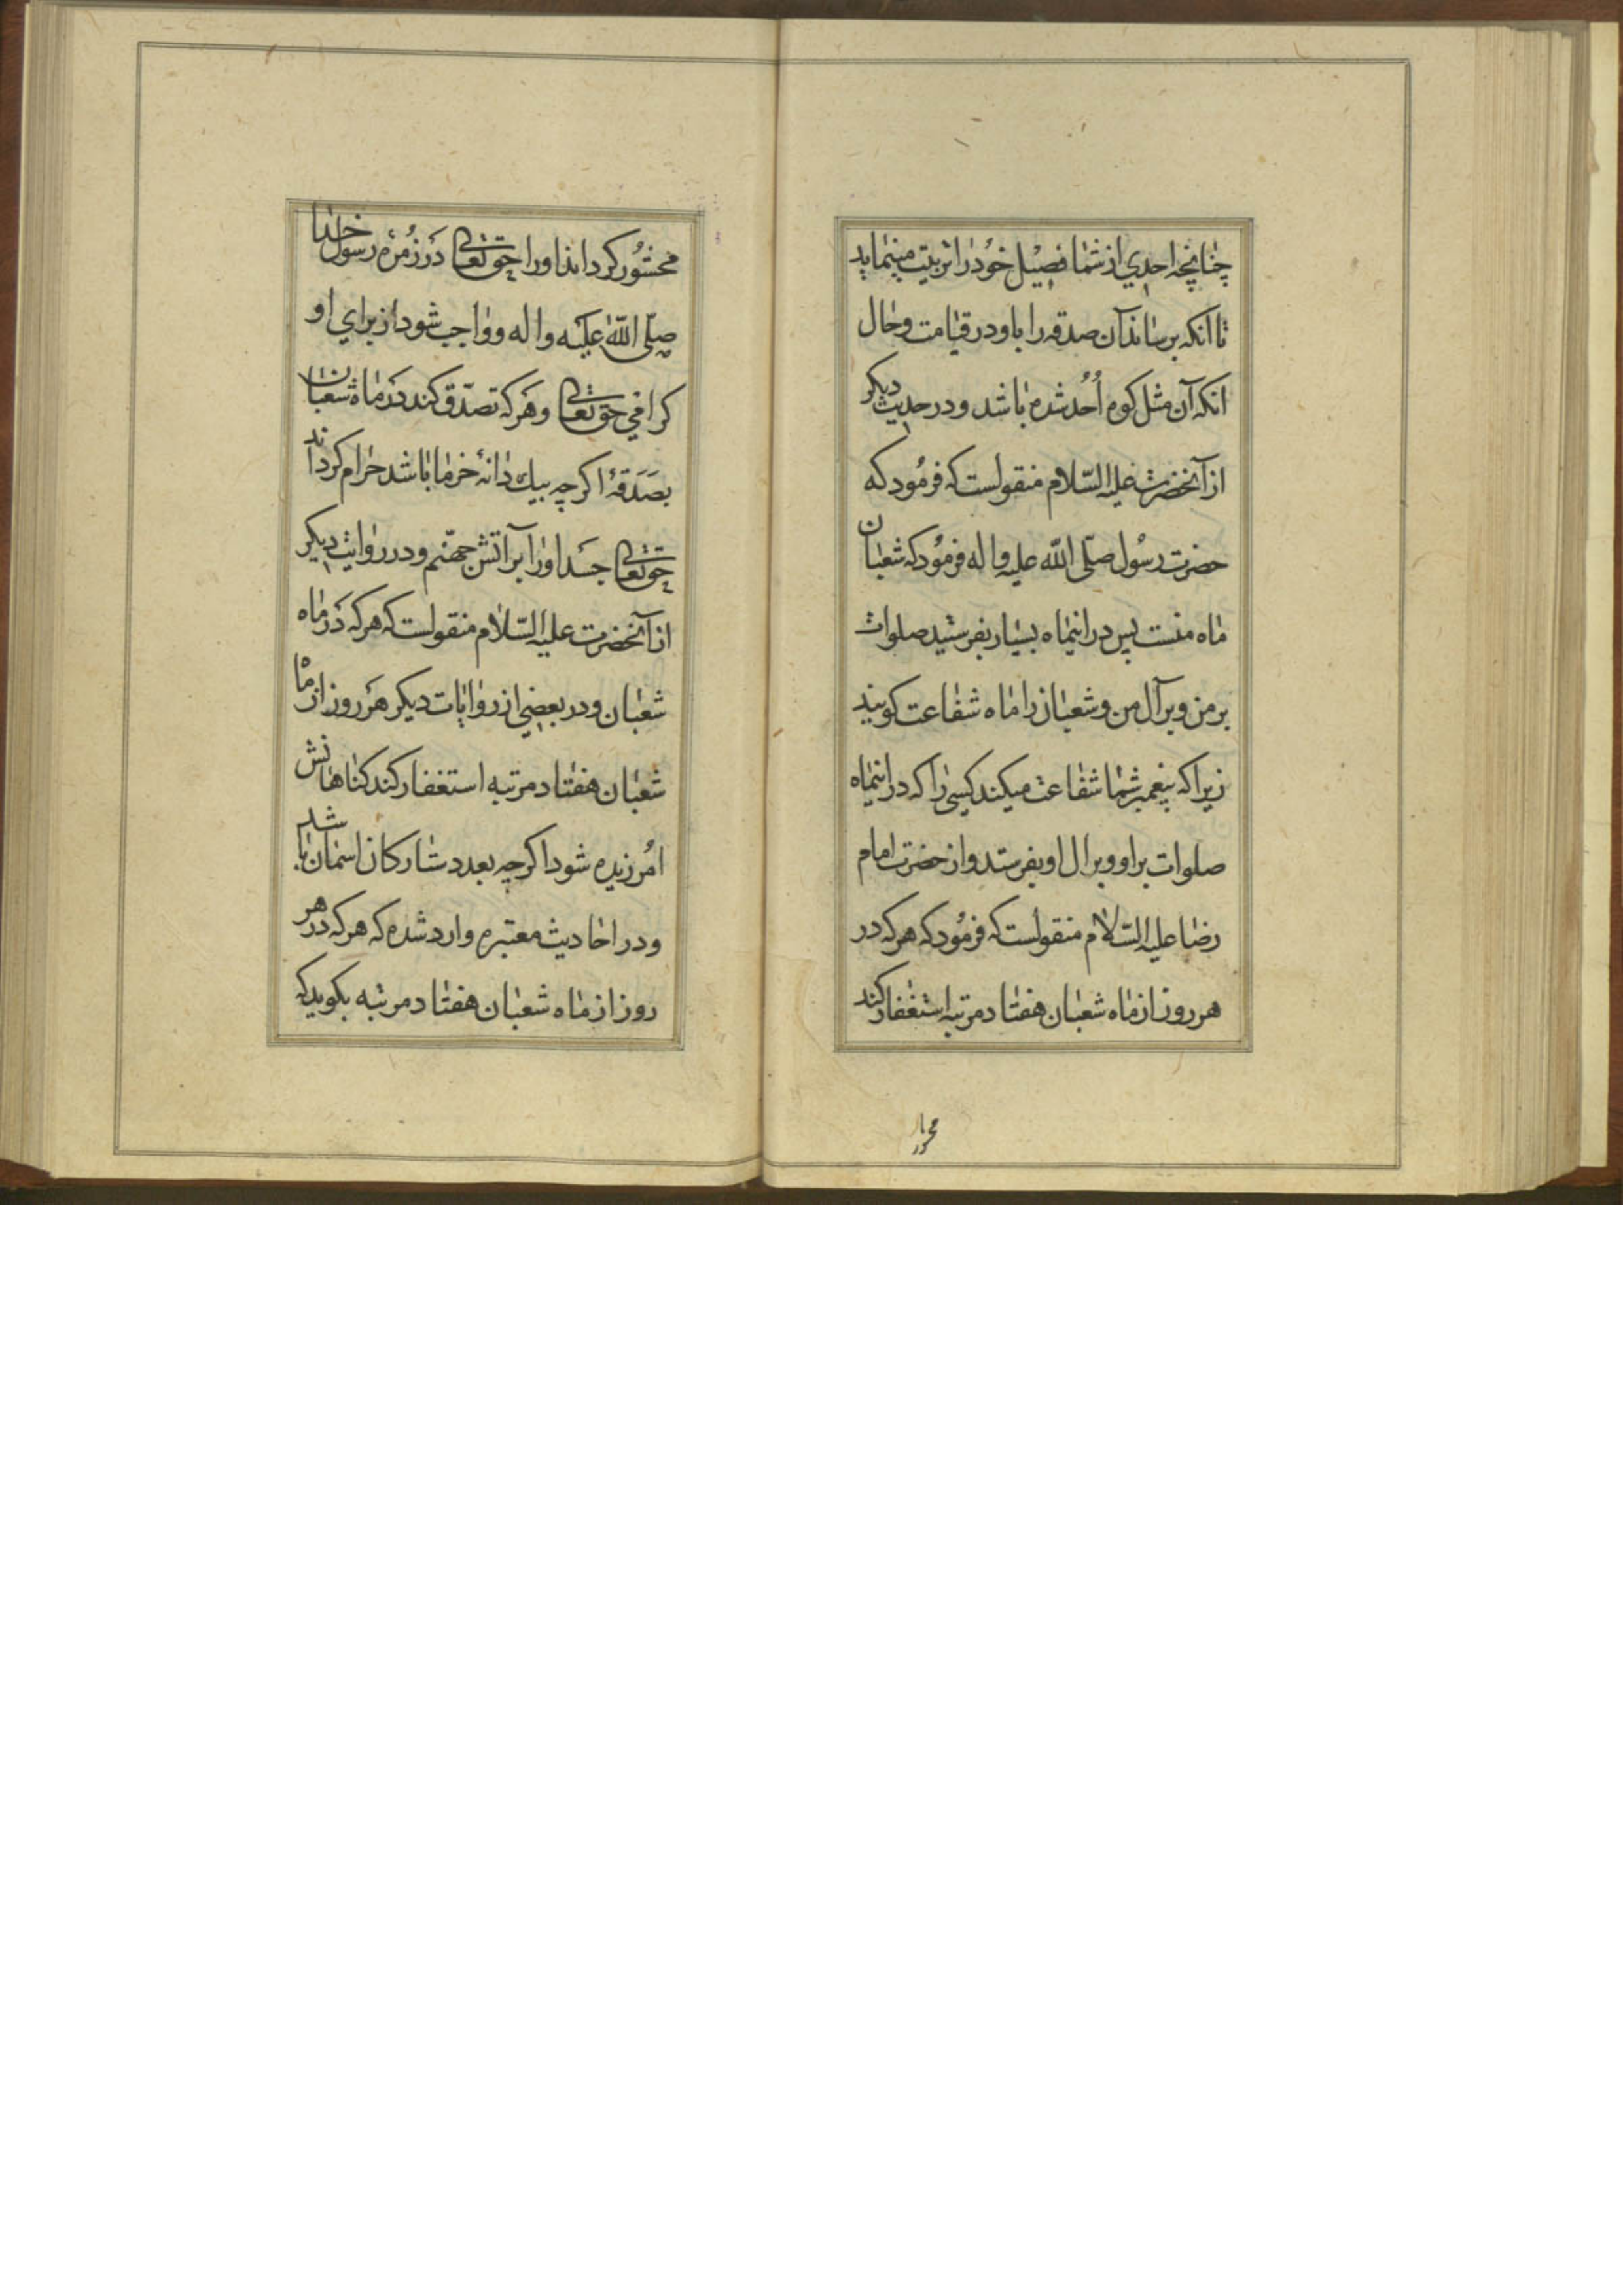 چنانچه احدي از شما فصیل خود را تربیت مینماید
تا آنکه برساند آن صدقه را باو در قیامت و حال
انکه آن مثل کوه اُحُد شده باشد و در حدیث دیکر
از آنحضرت علیه السّلام منقولست که فرمُود که
حضرت رسُول صلّی اللّه علیه واله فرمُود که شعبان
ماه منست پس در اینماه بسیار بفرستید صلوات
بر من و بر آل من و شعبان را ماه شفاعت کویند
زیرا که پیغمبر شما شفاعت میکند کسی را که در اینماه
صلوات بر او و بر ال او بفرستد و از حضرت امام
رضا علیه السّلام منقولست که فرمُود که هر که در
هر روز از ماه شعبان هفتاد مرتبه استغفار کند
محشُور کرداند او را حق تعالی دَر زُمرۀ رسول خدا
صلّی اللّه علیْه واله و واجب شود از براي او
کرامي حق تعالی و هَر که تصدّق کند دَر ماه شعبان
بصَدَقۀ اکر چه بیک دانۀ خرما باشد حرام کرداند
حق تعالی جسَد او را بر آتش جهنّم و در روایت دیکر
از آنحضرت علیه السّلام منقولست که هر که دَر ماه
شعبان و در بعضي از روایات دیکر هَر روز از ماه
شعبان هفتاد مرتبه استغفار کند کناهانش
امُرزیده شود اکر چه بعدد ستارکان اسمان باشد
و در احادیث معتبره وارد شده که هر که در هر
روز از ماه شعبان هفتاد مرتبه بکوید که